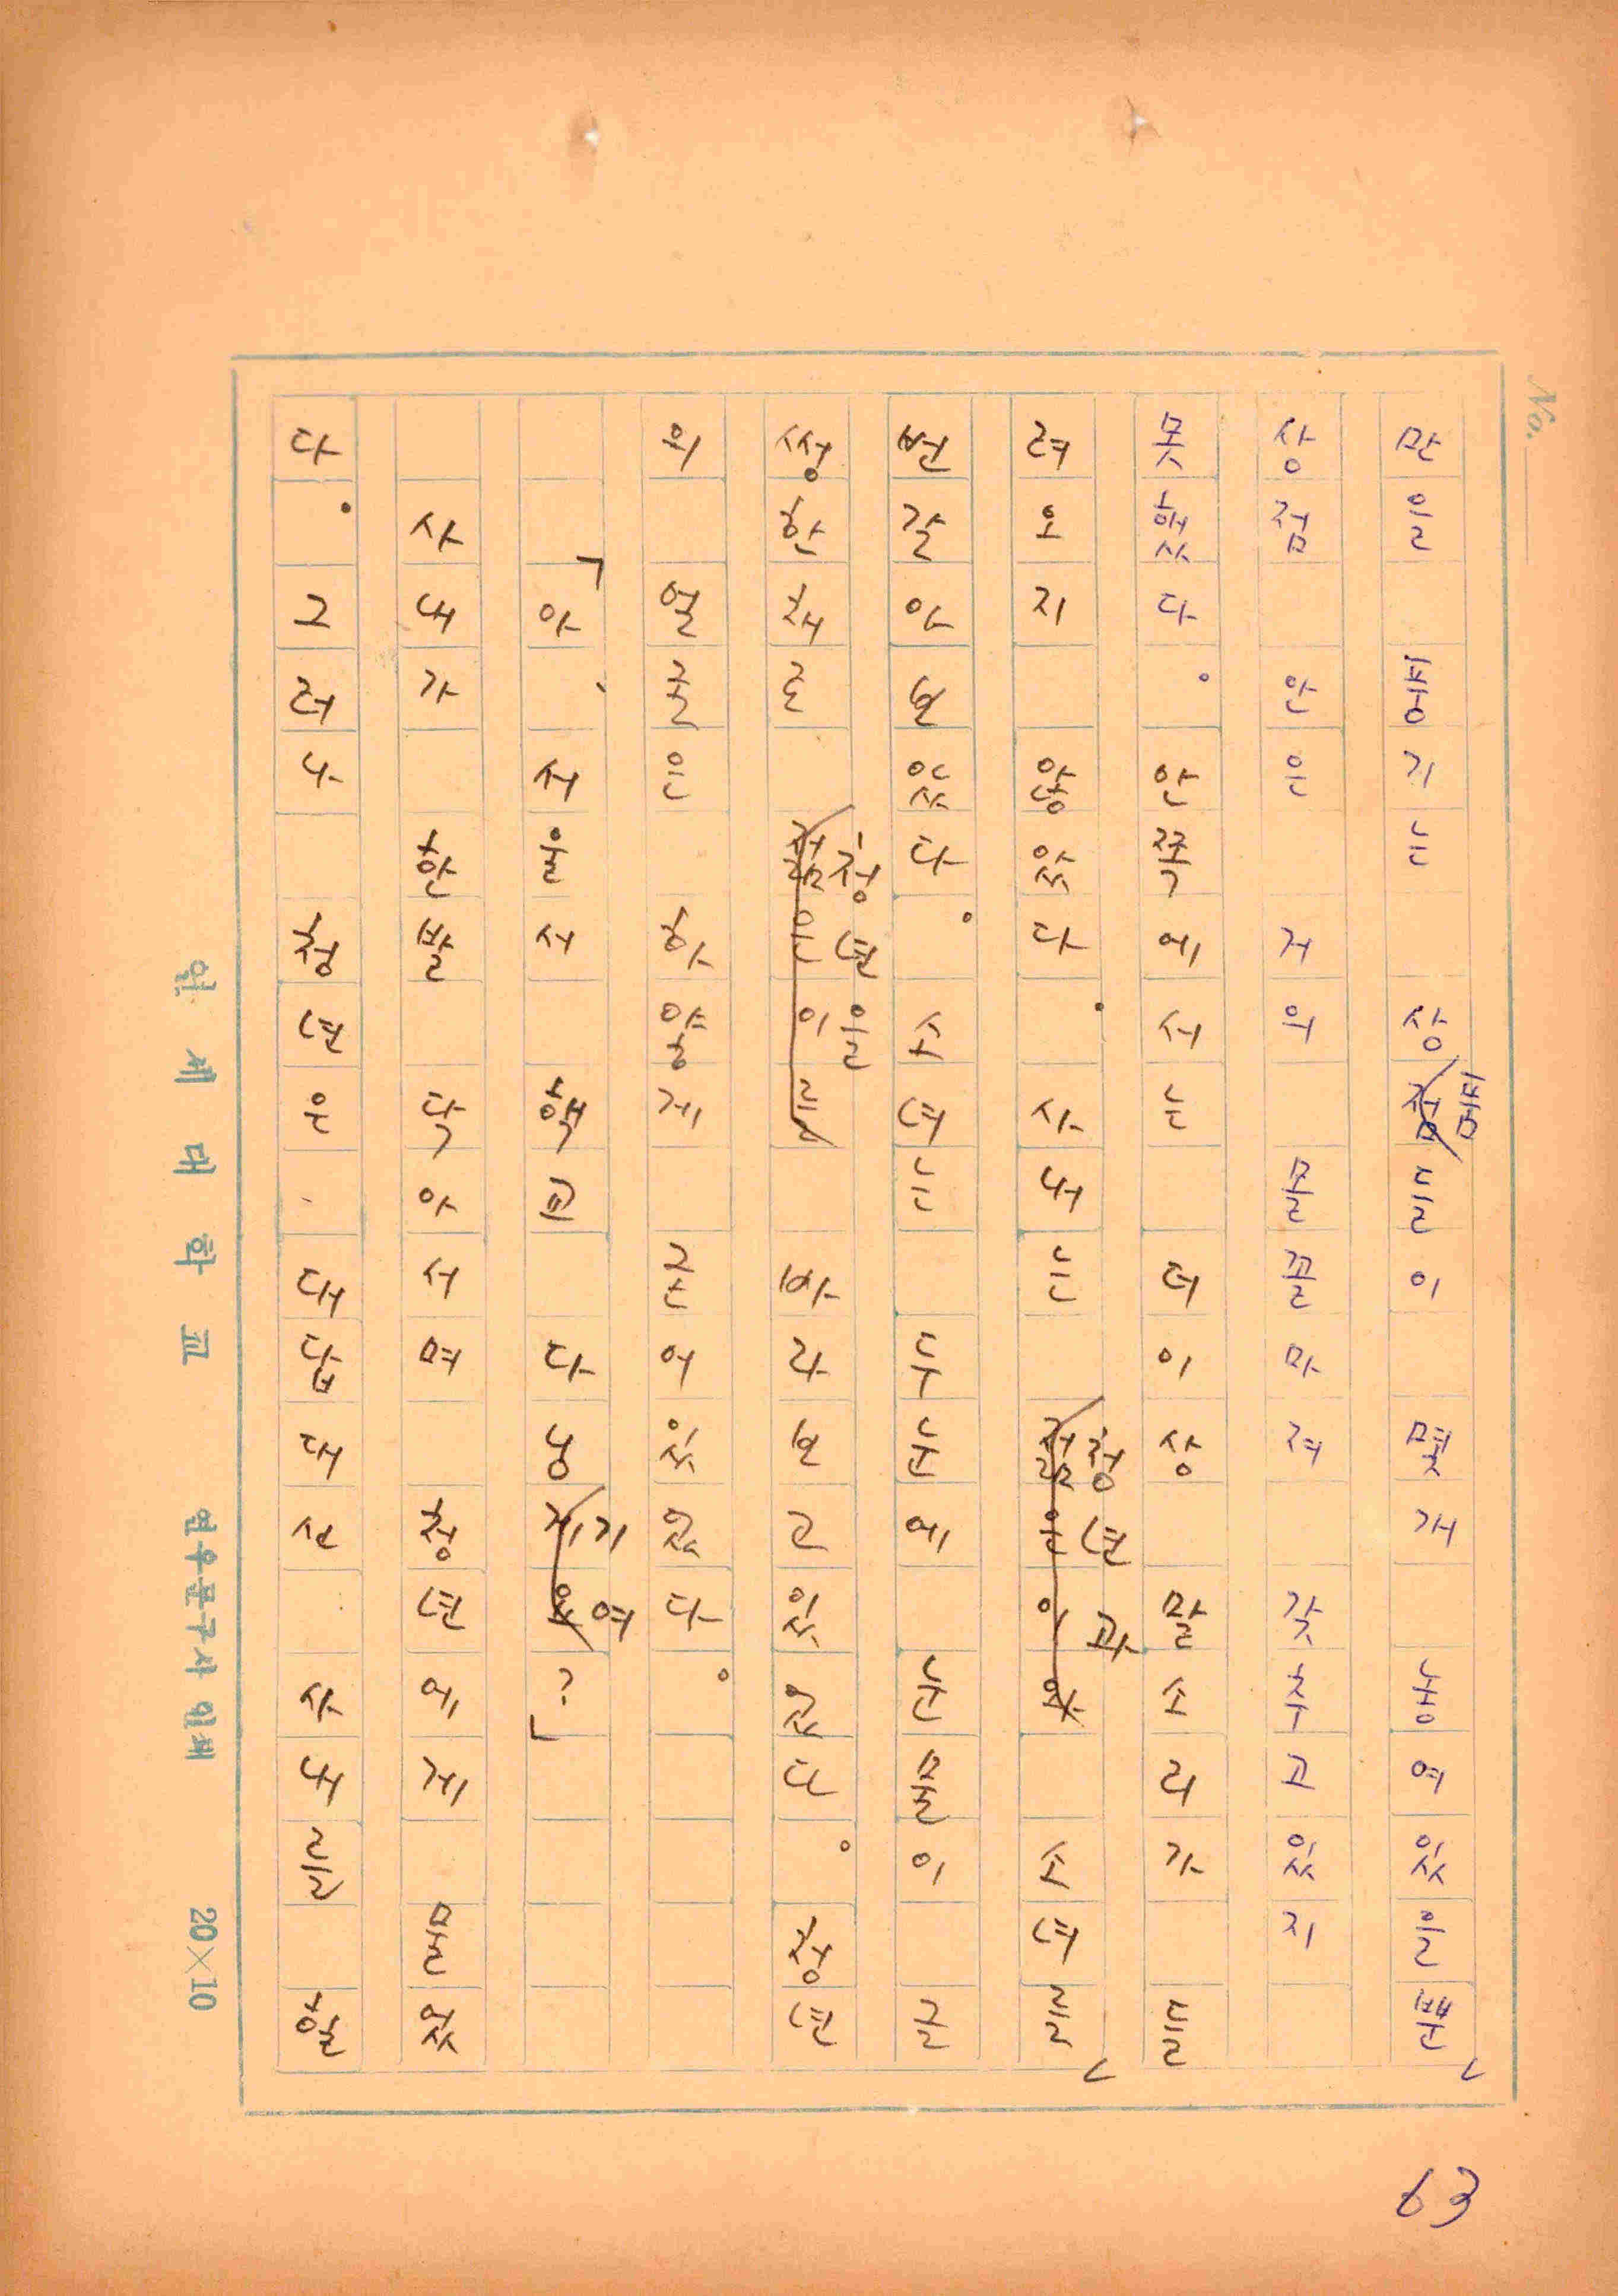 No.
63
만을 풍기는 상품들이 몇 개 놓여 있을 뿐
상점 안은 거의 몰골마져 갖추고 있지
못했다. 안쪽에서는 더이상 말소리가 들
려오지 않았다. 사내는 청년과 소녀를
번갈아 보았다. 소녀는 두 눈에 눈물이 글
썽한 채로 청년을 바라보고 있었다. 청년
의 얼굴은 하얗게 굳어 있었다.
「아, 서울서 학교 다닝기여?」
사내가 한발 닥아서며 청년에게 물었
다. 그러나 청년은, 대답 대신 사내를
연세대학교 연우문구사 인쇄 20×10